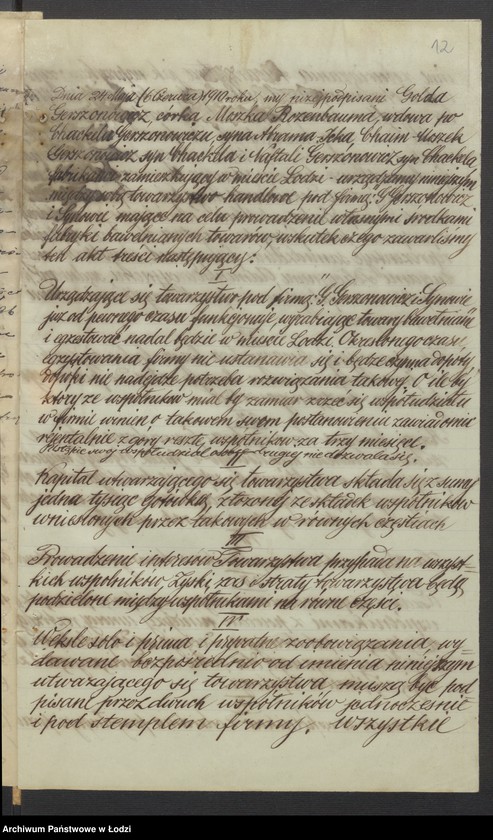 12
Dnia 24 Maja (6 Czerwca) 1910 roku, my niżej podpisani Golda
Gerszonowicz, córka Moszka Rozenbauma, wdowa po
Chackelu Gerszonowiczu, syna Abrama Icka, Chaim-Moszek
Gerszonowicz syn Chackela i Naftali Gerszonowicz syn Chackela
zamieszkujący w mieście Łodzi - urządzamy niniejszym
między sobą towarzystwo handlowe pod firmą: "G. Gerszonowicz
i Synowie" mające na celu prowadzenie własnymi środkami
fabryki bawełnianych towarów, wskutek czego zawarliśmy
ten akt treści następującej:
I
Urządzające się towarzystwo pod firmą: "G. Gerszonowicz i Synowie"
już od pewnego czasu funkcjonuje, wyrabiając towary bawełniane
i egzystować nadal będzie w mieście Łodzi. Określonego czasu
egzystowania firmy nie ustanawia się i będzie czynna dopóty
dopóki nie nadejdzie potrzeba rozwiązania takowej. O ile by
który ze wspólników miał by zamiar zrzec się współudziału
w firmie winien o takowem swem postanowieniu zawiadomić
rejentalnie z góry resztę wspólników za trzy miesiące.
swój współudział osobie drugiej nie dozwala się.
II
Kapitał utwarzającego się towarzystwa składa się z sumy
jedna tysiąc gotówką, złożonej ze składek wspólników
wniesionych przez takowych w równych częściach
III
Prowadzenie interesów Towarzystwa przypada na wszyst-
kich wspólników. Zyski zaś i straty towarzystwa będą
podzielone między wspólnikami na równe części.
IV
Weksle solo i prima i prywatne zobowiązania, wy-
dawane bezpośrednio od imienia niniejszym
utwarzającego się towarzystwa muszą być pod
pisane przez dwuch wspólników jednocześnie
i pod stemplem firmy. Wszystkie
Archiwum Państwowe w Łodzi